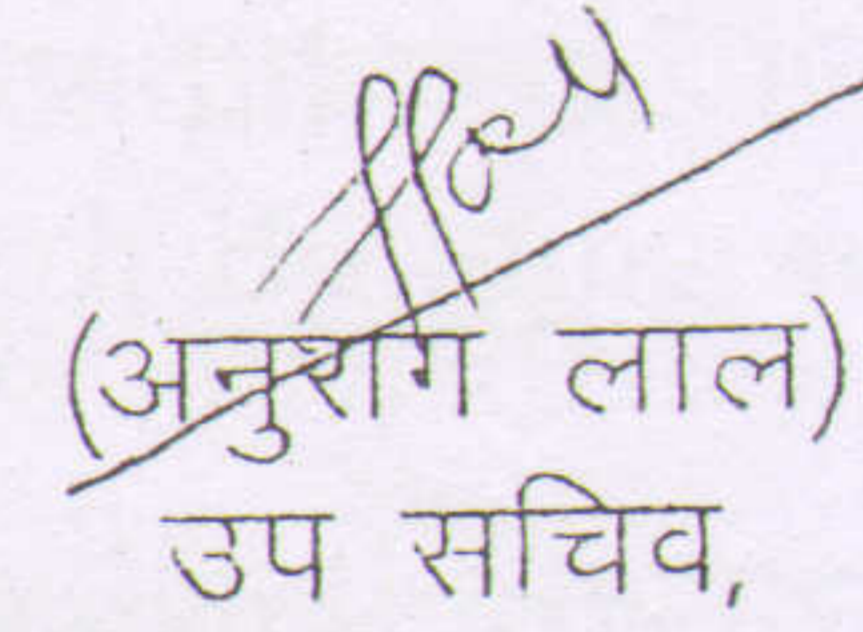 (अनुराग लाल)
उप सचिव,